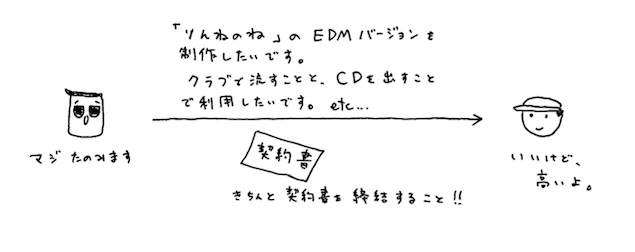 「りんねのね」の EDM バージョンを
制作したいです。
クラブで流すことと、CDを出すこと
で利用したいです。 etc...
マジ たのみます
契約書
きちんと 契約書を 締結すること!!
いいけど、
高いよ。